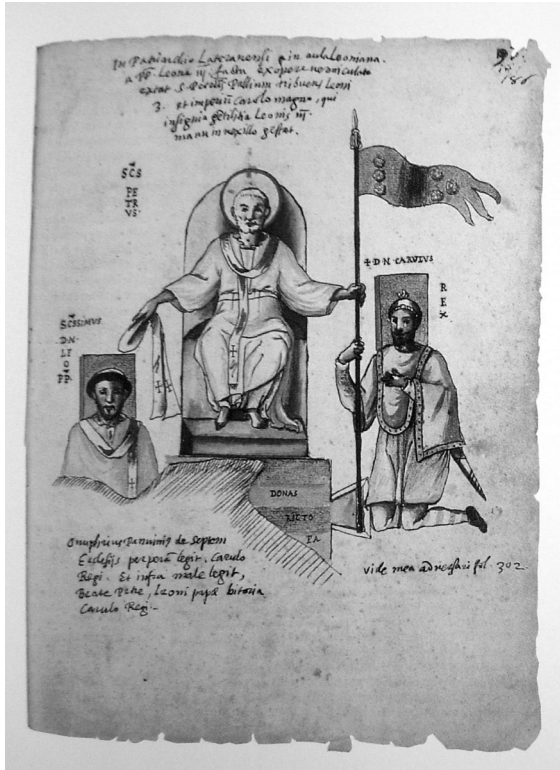 In Patriarchio Lateranensi in aula Leoniana.
a PP. Leone iij. facta ex opere vermiculato
extat S. Petrus Pallium tribuens Leoni
3. et imperiū Carolo magno, qui
insignia gentilitia Leonis iij.
manu in vexillo gestat.
186
SCS
PE
TR
VS.
+ D·N·CARVLVS
R
E
X
SCSSIMVS
D·N·
LE
O
PP
DONAS
BICTO
Onuphrius Panuinius de septem
Ecclesijs perperā legit, Carulo
Regi. Et infra male legit,
Beate Petre, Leoni papæ bitoria
Carulo Regi.
vide mea adversari fol. 302